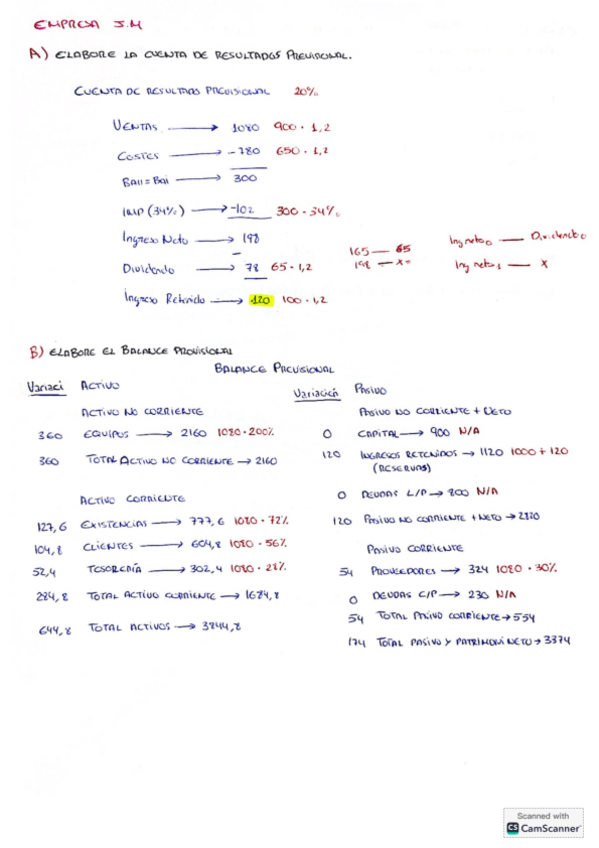 EMPRESA J.M
A) ELABORE LA CUENTA DE RESULTADOS PREVISIONAL.
CUENTA DE RESULTADOS PREVISIONAL 20%
VENTAS → 1080 900 · 1,2
COSTES → -780 650 · 1,2
BAII = Bai → 300
IMP (34%) → -102 300 · 34%
Ingreso Neto → 198
165 — 65
Ing neto0 — Dividendo
Dividendo → 78 65 · 1,2
198 — x =
Ing neto1 — x
Ingreso Retenido → 120 100 · 1,2
B) ELABORE EL BALANCE PROVISIONAL
BALANCE PREVISIONAL
Variaci ACTIVO
Variación PASIVO
ACTIVO NO CORRIENTE
PASIVO NO CORRIENTE + NETO
360 EQUIPOS → 2160 1080 · 200%
0 CAPITAL → 900 N/A
360 TOTAL ACTIVO NO CORRIENTE → 2160
120 INGRESOS RETENIDOS → 1120 1000 + 120
(RESERVAS)
ACTIVO CORRIENTE
0 DEUDAS L/P → 800 N/A
127,6 EXISTENCIAS → 777,6 1080 · 72%
120 PASIVO NO CORRIENTE + NETO → 2820
104,8 CLIENTES → 604,8 1080 · 56%
PASIVO CORRIENTE
52,4 TESORERÍA → 302,4 1080 · 28%
54 PROVEEDORES → 324 1080 · 30%
284,8 TOTAL ACTIVO CORRIENTE → 1684,8
0 DEUDAS C/P → 230 N/A
54 TOTAL PASIVO CORRIENTE → 554
644,8 TOTAL ACTIVOS → 3844,8
174 TOTAL PASIVO Y PATRIMONI NETO → 3374
Scanned with
CS CamScanner